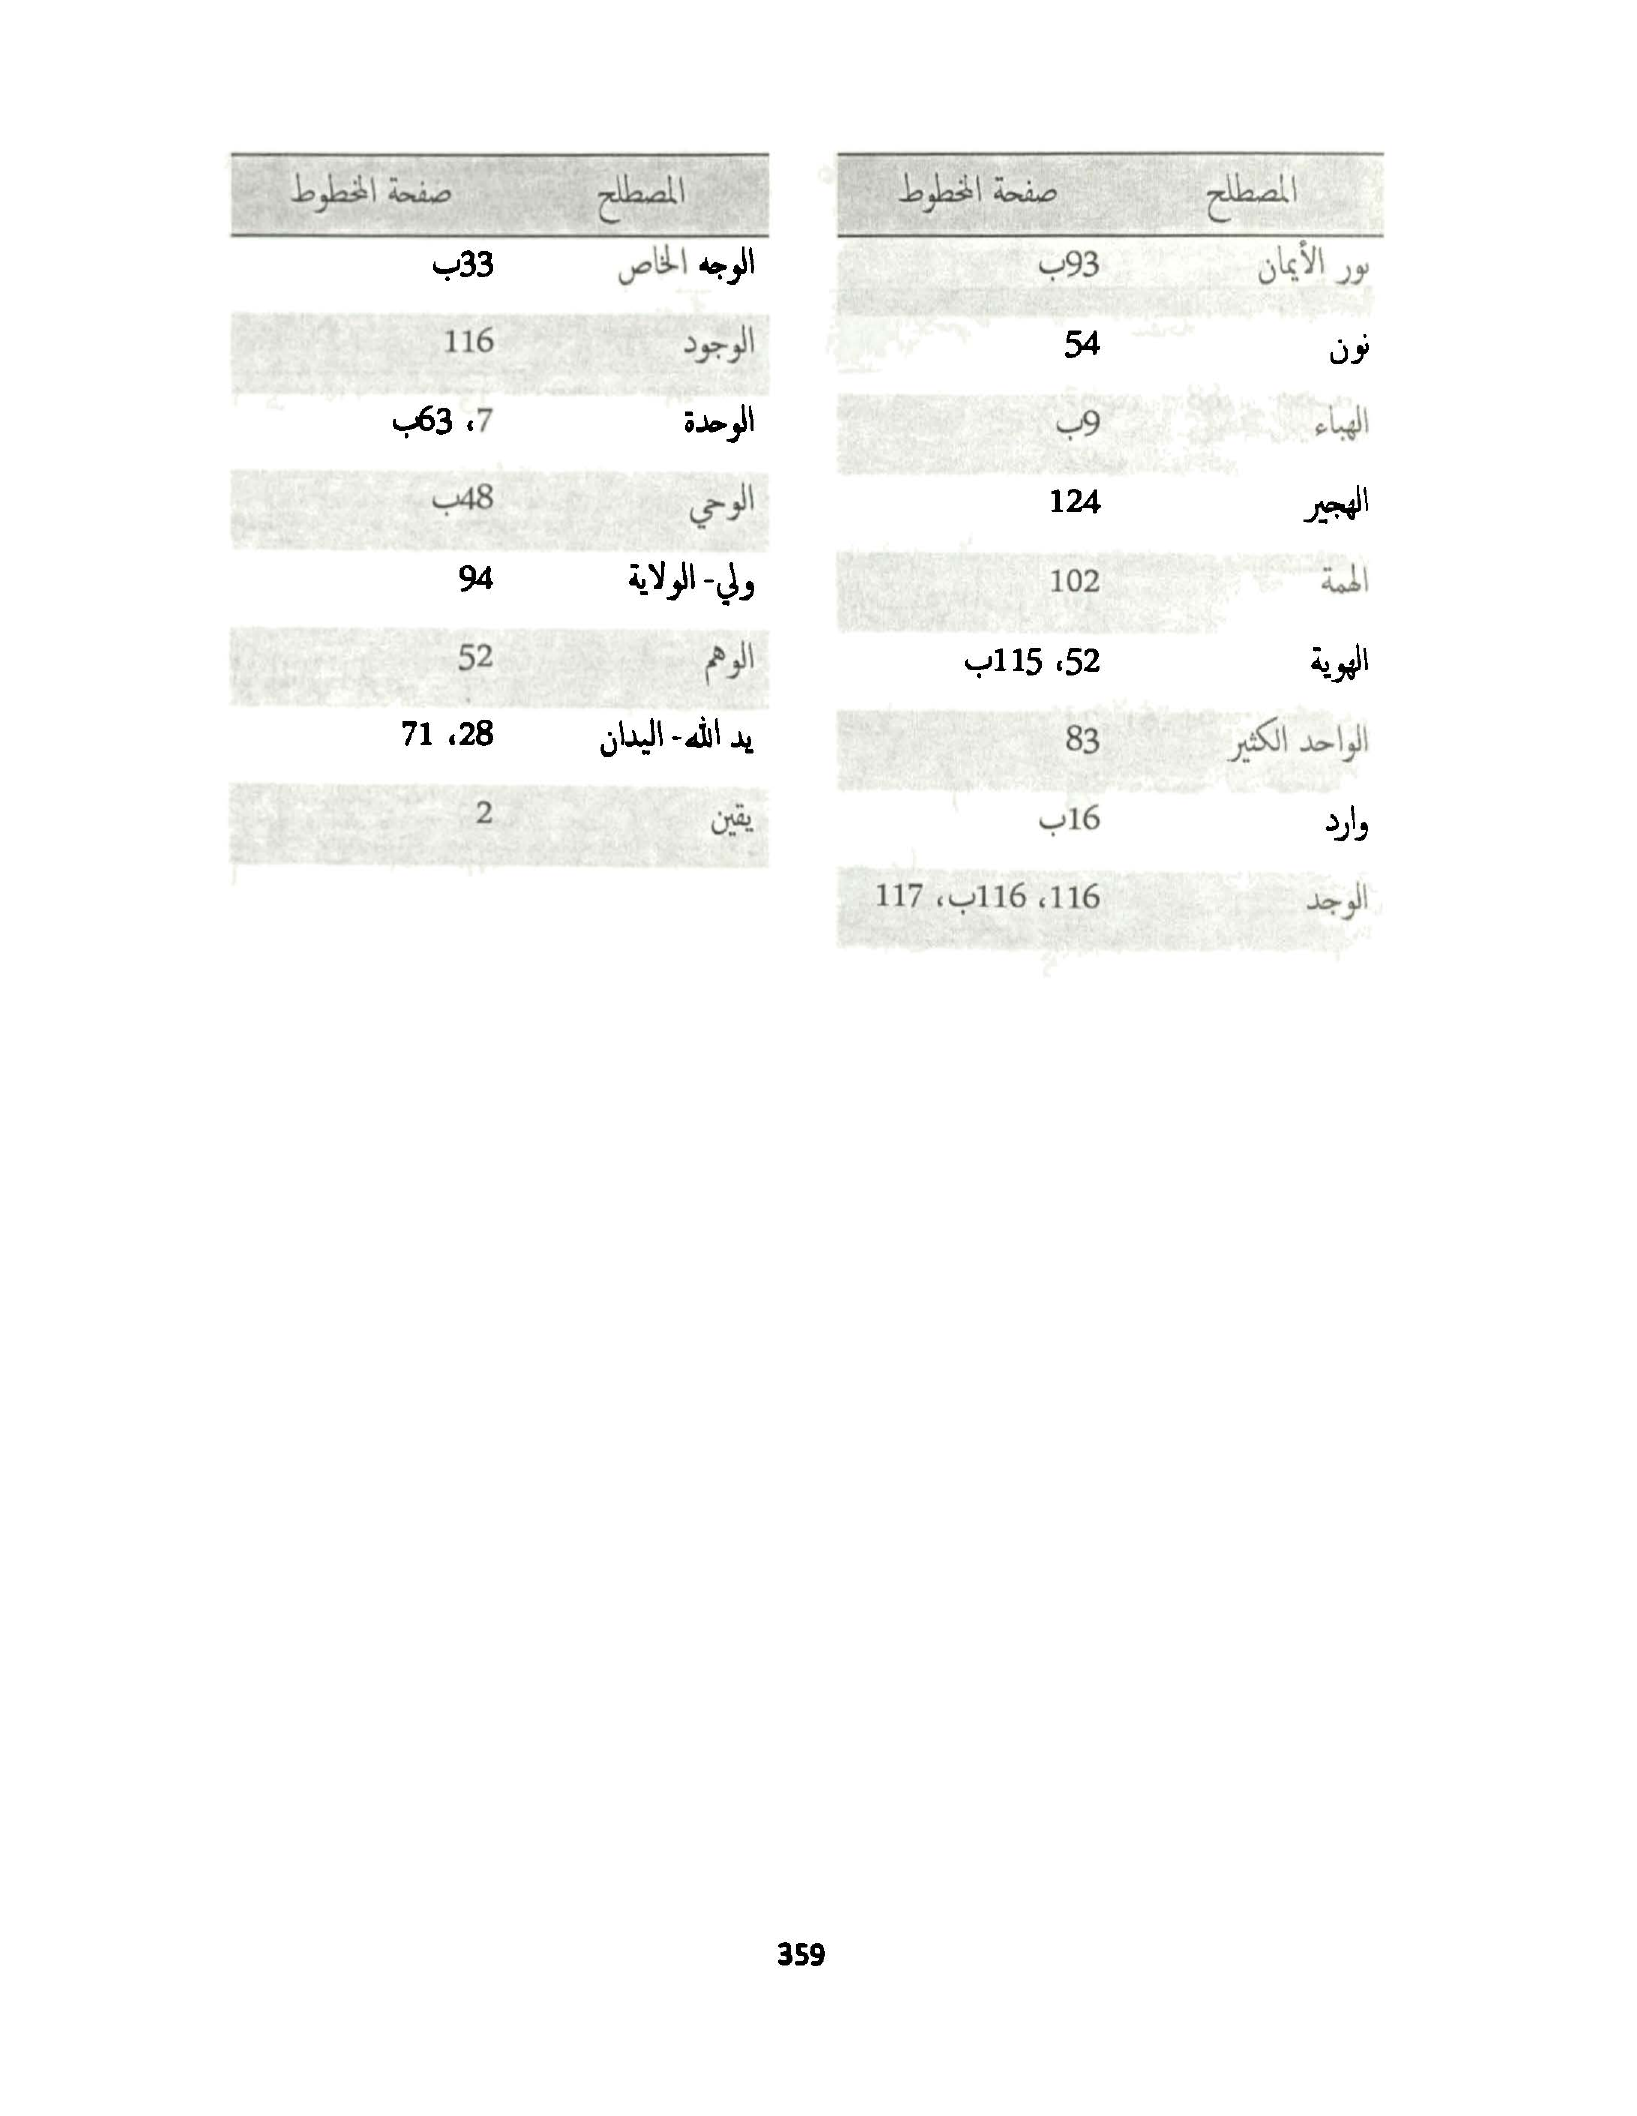 المصطلح صفحة المخطوط
نور الأيمان 93ب
نون 54
الهباء 9ب
الهجير 124
الهمة 102
الهوية 52، 115ب
الواحد الكثير 83
وارد 16ب
الوجد 116، 116ب، 117
المصطلح صفحة المخطوط
الوجه الخاص 33ب
الوجود 116
الوحدة 7، 63ب
الوحي 48ب
ولي- الولاية 94
الوهم 52
يد الله- اليدان 28، 71
يقين 2
359